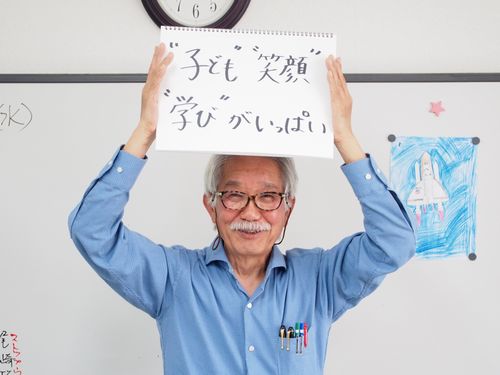 7 6 5
"子ども" "笑顔"
"学び"がいっぱい